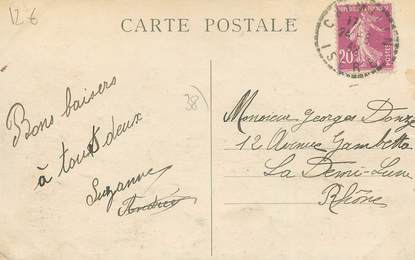 12 €
CARTE POSTALE
20c
38)
Bons baisers
à tous deux
Suzanne
Andrée
Monsieur Georges Donze
12 Avenue Gambetta
La Demi-Lune
Rhône